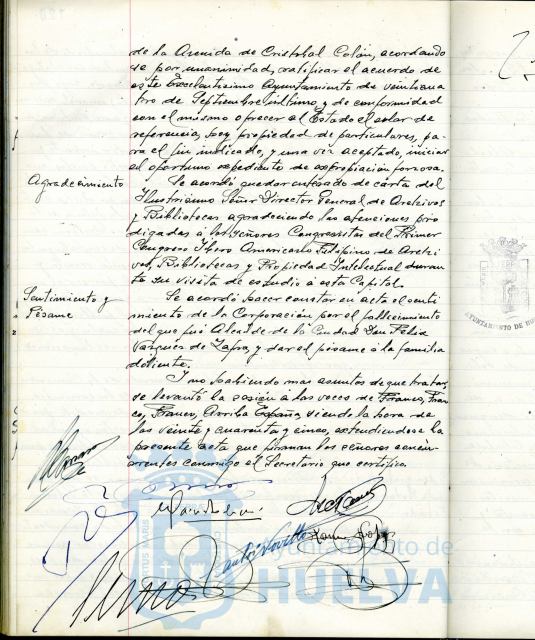 de la Avenida de Cristobal Colón, acordando
se por unanimidad, ratificar el acuerdo de
este Excelentísimo Ayuntamiento de veinticua
tro de Septiembre último, y de conformidad
con el mismo ofrecer al Estado el solar de
referencia, hoy propiedad de particulares, pa
ra el fin indicado, y una vez aceptado, iniciar
el oportuno expediente de expropiación forzosa.
Agradecimiento
Se acordó quedar enterado de carta del
Ilustrísimo Señor Director General de Archivos
y Bibliotecas agradeciendo las atenciones pro
digadas á los Señores Congresistas del Primer
Congreso Ibero Americano Filipino de Archi
vos, Bibliotecas y Propiedad Intelectual duran
te su visita de estudio á esta Capital.
Sentimiento y
Pésame
Se acordó hacer constar en acta el senti
miento de la Corporación por el fallecimiento
del que fué Alcalde de la Ciudad Don Felix
Vazquez de Zafra, y dar el pésame á la familia
doliente.
Y no habiendo mas asuntos de que tratar,
se levantó la sesión a las voces de Franco, Fran
co, Franco, Arriba España, siendo la hora de
las veinte y cuarenta y cinco, extendiendose la
presente acta que firman los señores concu
rrentes conmigo el Secretario que certifico.
Ayuntamiento de
HUELVA